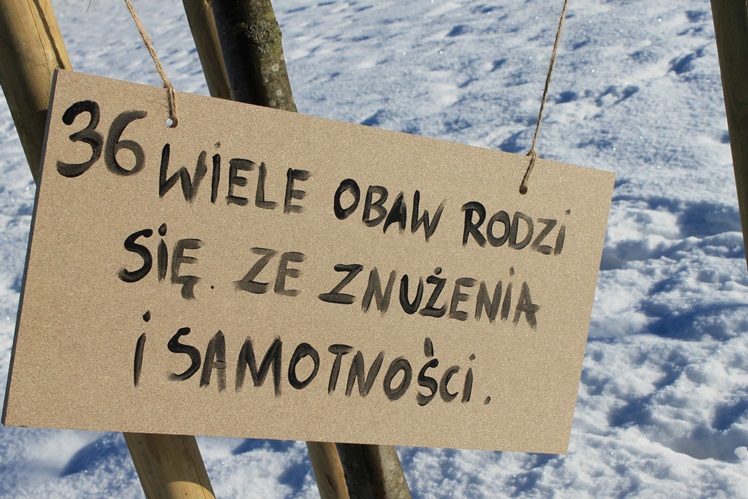 36 WIELE OBAW RODZI
SIĘ. ZE ZNUŻENIA
i SAMOTNOŚCI.